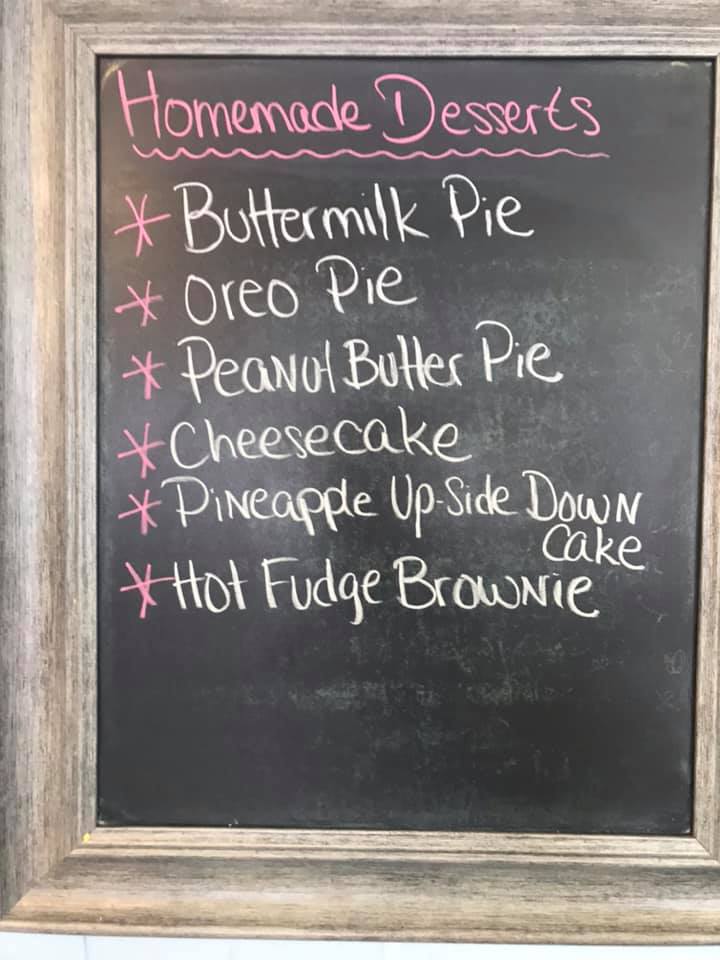 Homemade Desserts
* Buttermilk Pie
* Oreo Pie
* Peanut Butter Pie
* Cheesecake
* Pineapple Up-Side Down
Cake
* Hot Fudge Brownie